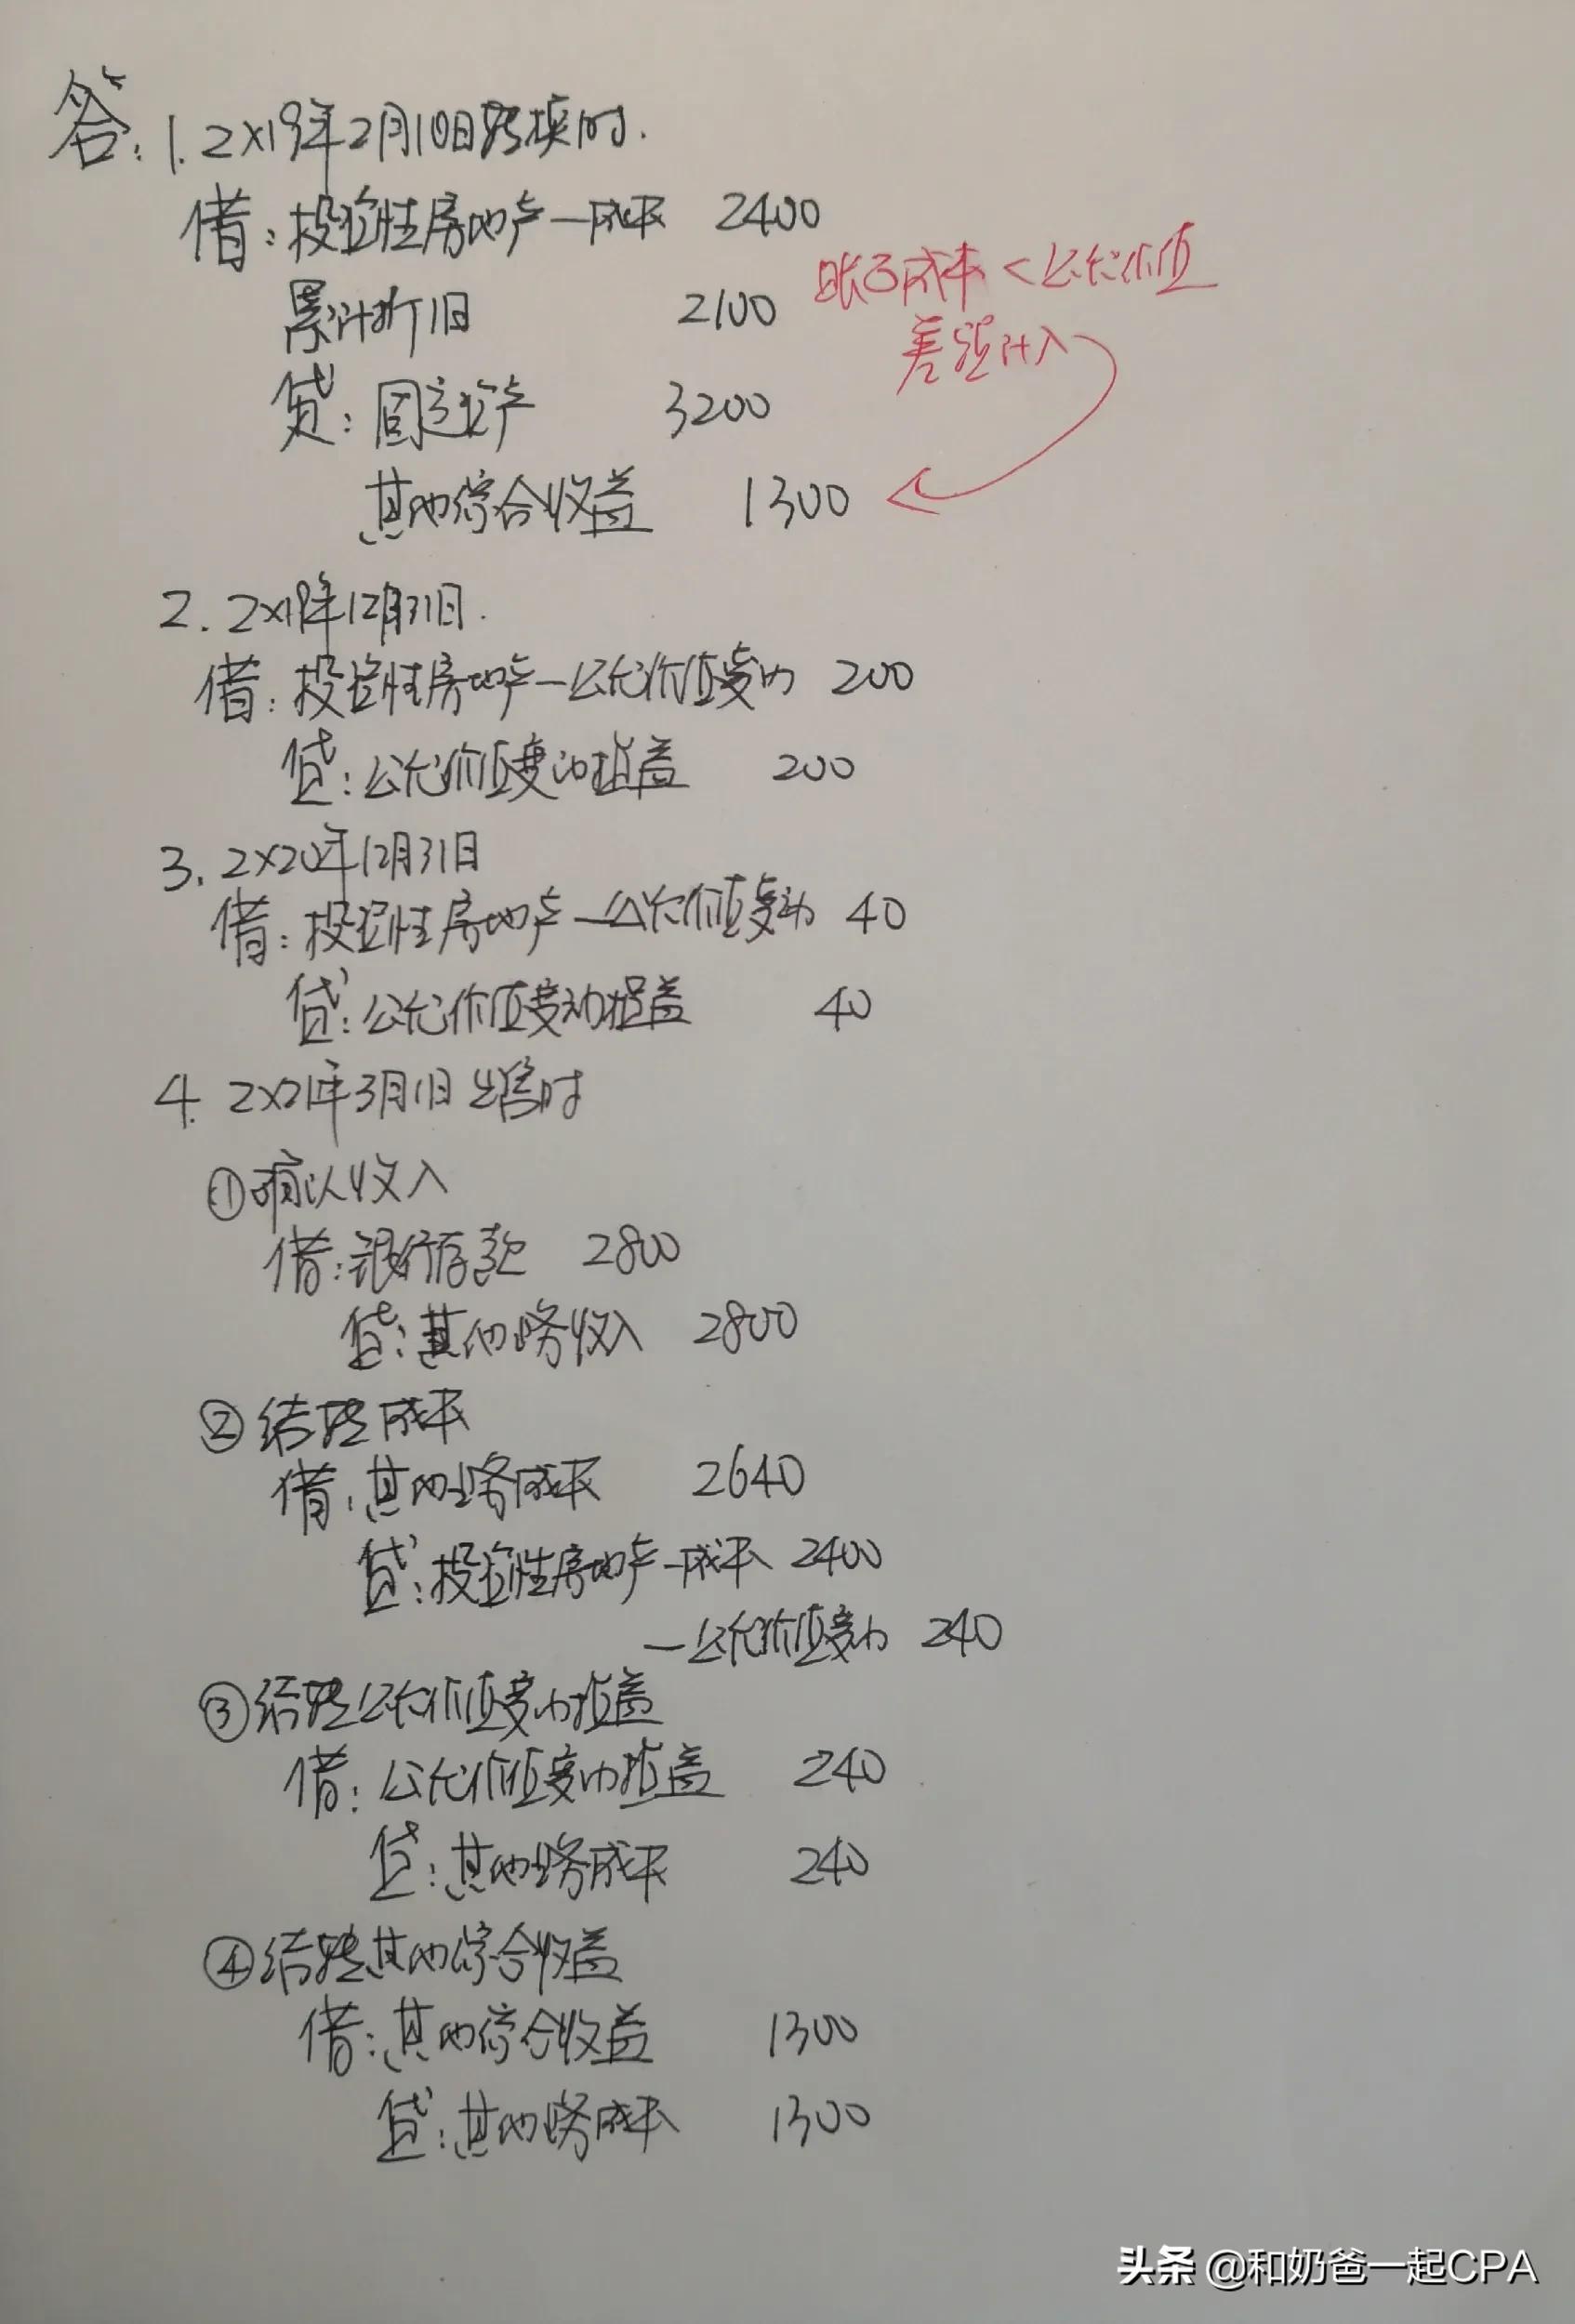 答：1. 2×19年2月10日转换时.
借：投资性房地产—成本 2400
累计折旧 2100
账面成本<公允价值
差额计入
贷：固定资产 3200
其他综合收益 1300
2. 2×19年12月31日.
借：投资性房地产—公允价值变动 200
贷：公允价值变动损益 200
3. 2×20年12月31日
借：投资性房地产—公允价值变动 40
贷：公允价值变动损益 40
4. 2×21年3月1日出售时
①确认收入
借：银行存款 2800
贷：其他业务收入 2800
②结转成本
借：其他业务成本 2640
贷：投资性房地产—成本 2400
—公允价值变动 240
③结转公允价值变动损益
借：公允价值变动损益 240
贷：其他业务成本 240
④结转其他综合收益
借：其他综合收益 1300
贷：其他业务成本 1300
头条 @和奶爸一起CPA